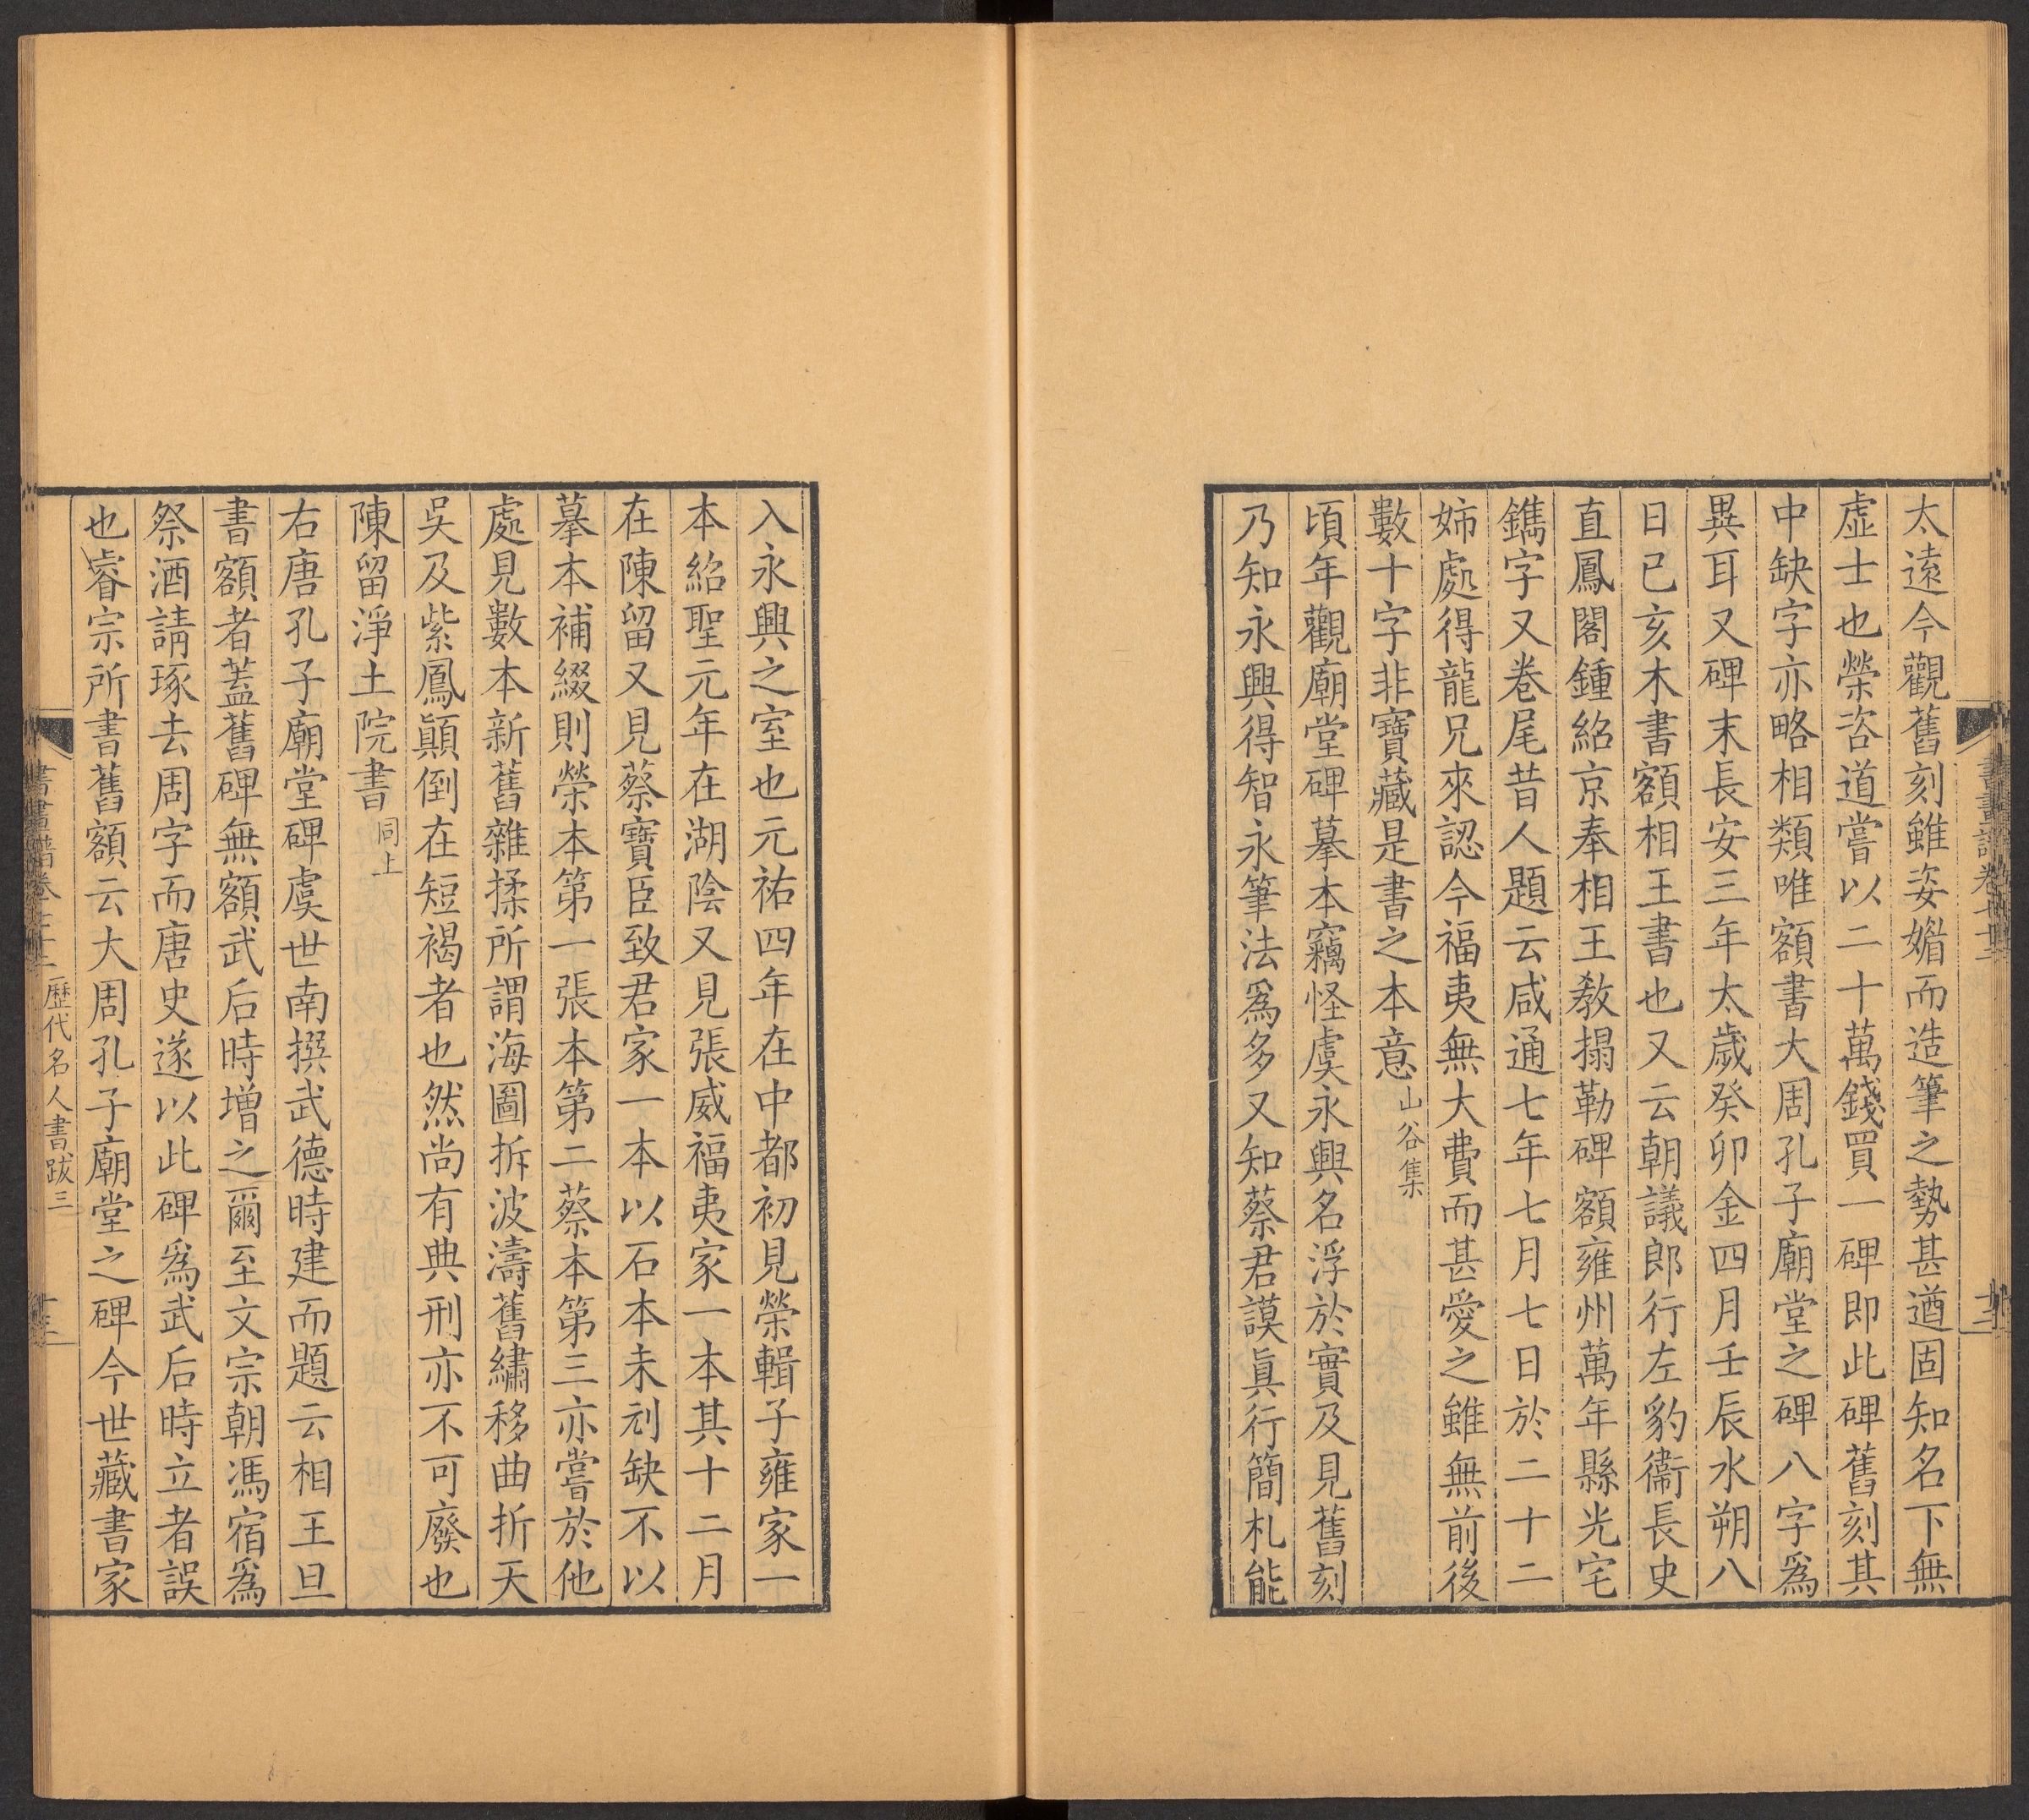 太遠今觀舊刻雖姿媚而造筆之勢甚遒固知名下無
虛士也榮咨道嘗以二十萬錢買一碑即此碑舊刻其
中缺字亦略相類唯額書大周孔子廟堂之碑八字爲
異耳又碑末長安三年太歲癸卯金四月壬辰水朔八
日已亥木書額相王書也又云朝議郎行左豹衞長史
直鳳閣鍾紹京奉相王敎搨勒碑額雍州萬年縣光宅
鐫字又卷尾昔人題云咸通七年七月七日於二十二
姊處得龍兄來認今福夷無大費而甚愛之雖無前後
數十字非寶藏是書之本意山谷集
頃年觀廟堂碑摹本竊怪虞永興名浮於實及見舊刻
乃知永興得智永筆法爲多又知蔡君謨眞行簡札能
入永興之室也元祐四年在中都初見榮輯子雍家一
本紹聖元年在湖陰又見張威福夷家一本其十二月
在陳留又見蔡寶臣致君家一本以石本未刓缺不以
摹本補綴則榮本第一張本第二蔡本第三亦嘗於他
處見數本新舊雜揉所謂海圖拆波濤舊繡移曲折天
吳及紫鳳顚倒在短褐者也然尚有典刑亦不可廢也
陳留淨土院書同上
右唐孔子廟堂碑虞世南撰武德時建而題云相王旦
書額者蓋舊碑無額武后時增之爾至文宗朝馮宿爲
祭酒請琢去周字而唐史遂以此碑爲武后時立者誤
也睿宗所書舊額云大周孔子廟堂之碑今世藏書家
書畫譜卷七十三 歷代名人書跋三